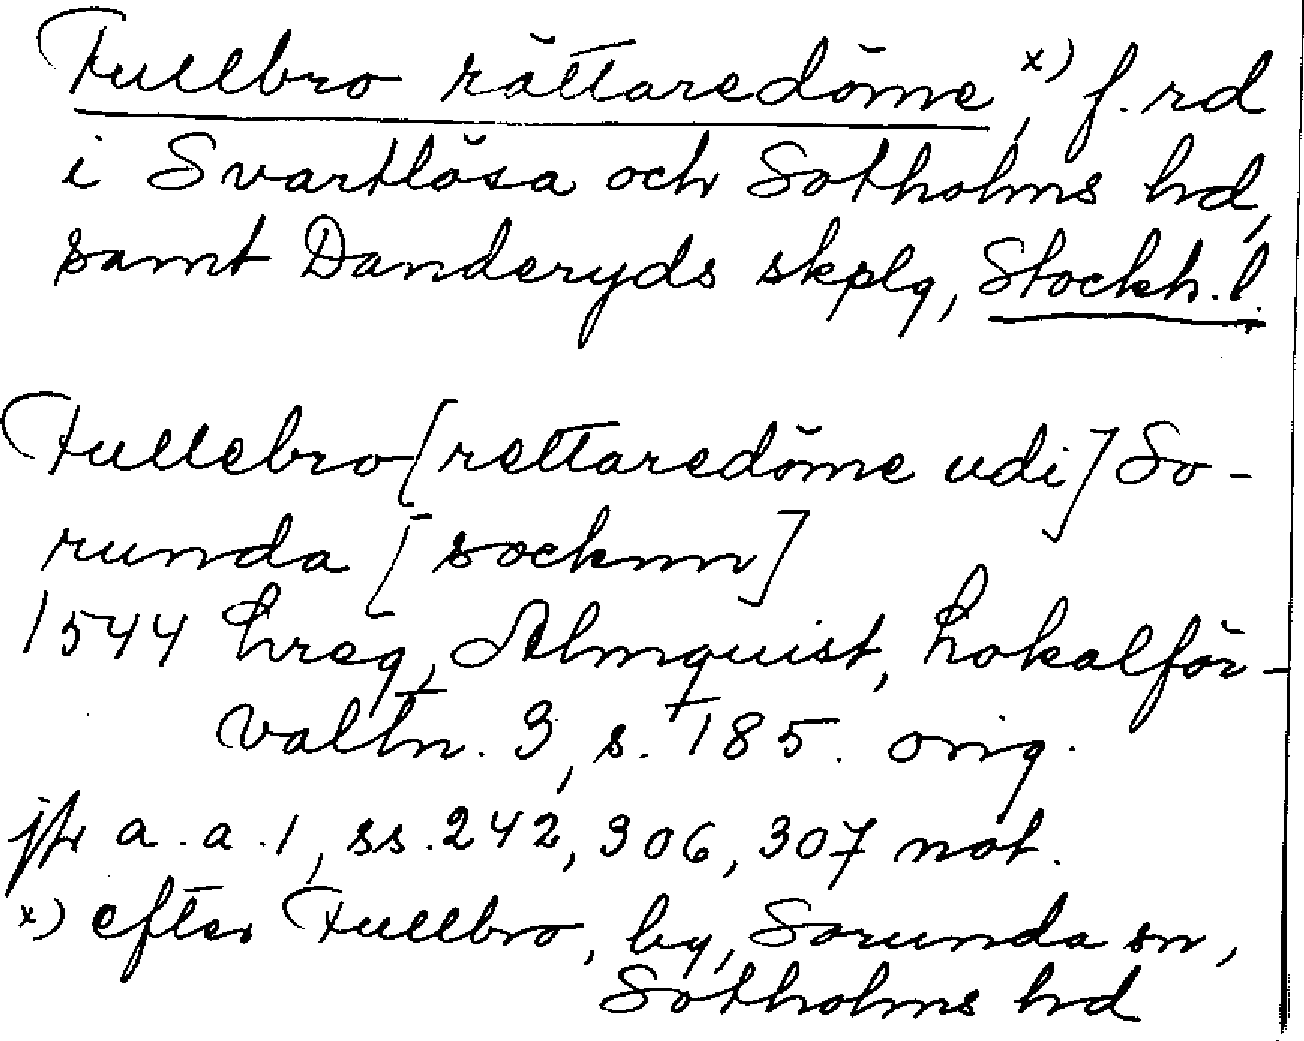 Fullbro rättaredöme, x) f.rd
i Svartlösa och Sotholms hd,
samt Danderyds skplg, Stockh. l.
Fullebro [rettaredöme udi] So-
runda [socknn]
1544 hreg, Almquist, Lokalför-
valtn. 3, s. 185. orig.
jfr a.a. 1, ss. 242, 306, 307 not.
x) efter Fullbro, by, Sorunda sn,
Sotholms hd